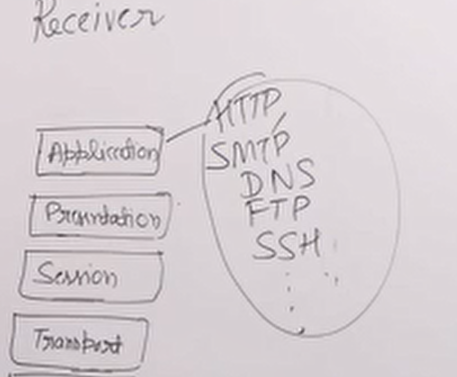 Receiver
Application
Presentation
Session
Transport
HTTP
SMTP
DNS
FTP
SSH